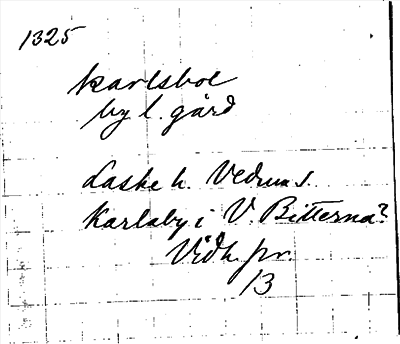 1325
Karlsbol
by l. gård
Laske h. Vedum s.
Karlaby i V. Bitterna?
Vidh pr.
13